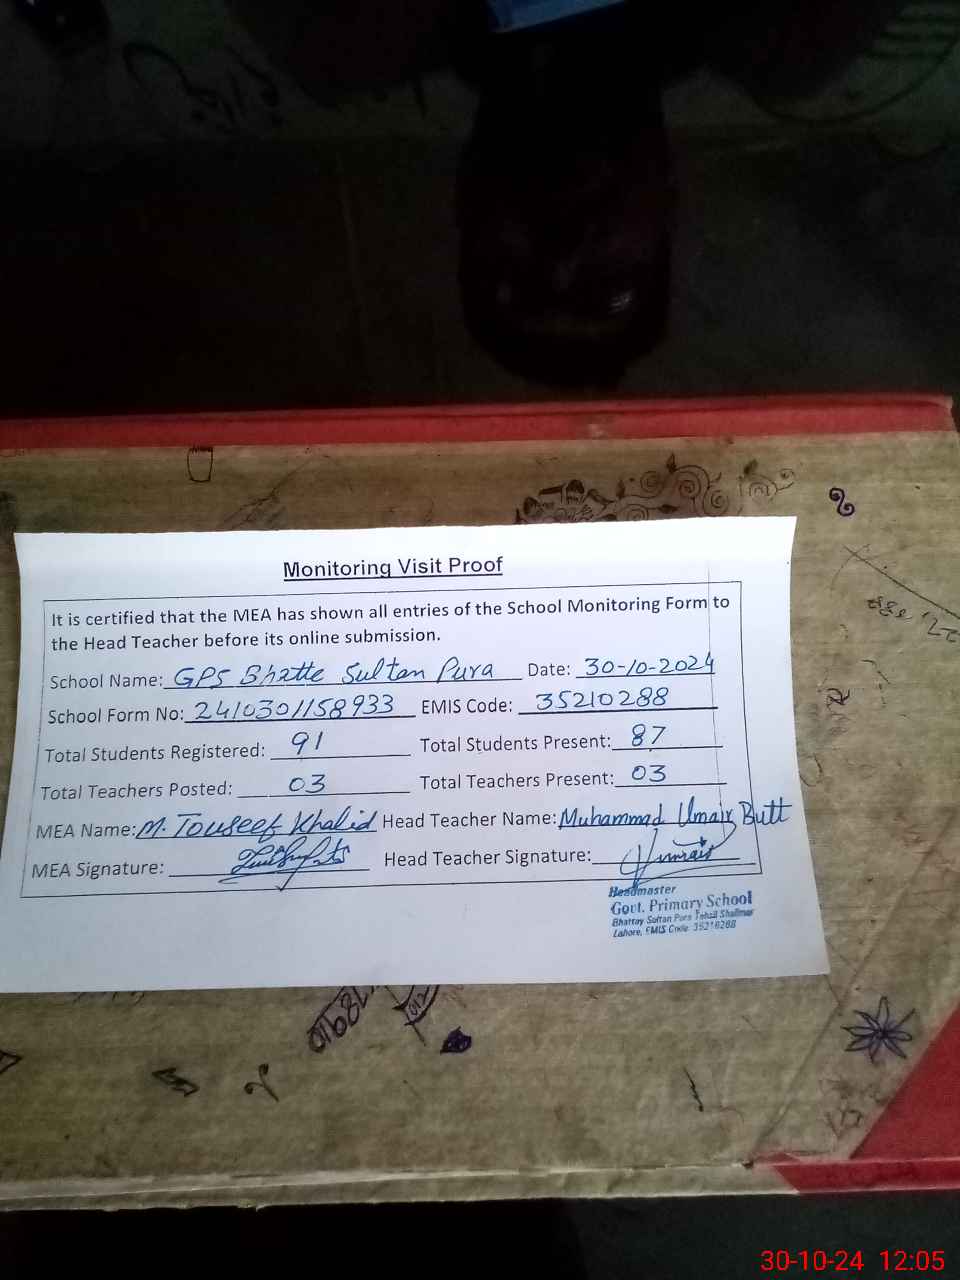 Monitoring Visit Proof
It is certified that the MEA has shown all entries of the School Monitoring Form to
the Head Teacher before its online submission.
School Name: GPS Bhatte Sultan Pura Date: 30-10-2024
School Form No: 2410301158933 EMIS Code: 35210288
Total Students Registered: 91 Total Students Present: 87
Total Teachers Posted: 03 Total Teachers Present: 03
MEA Name: M. Touseef Khalid Head Teacher Name: Muhammad Umair Butt
MEA Signature: Head Teacher Signature: Umair
Headmaster
Govt. Primary School
Bhattay Sultan Pura Tehsil Shalimar
Lahore, EMIS Code 35210288
30-10-24 12:05